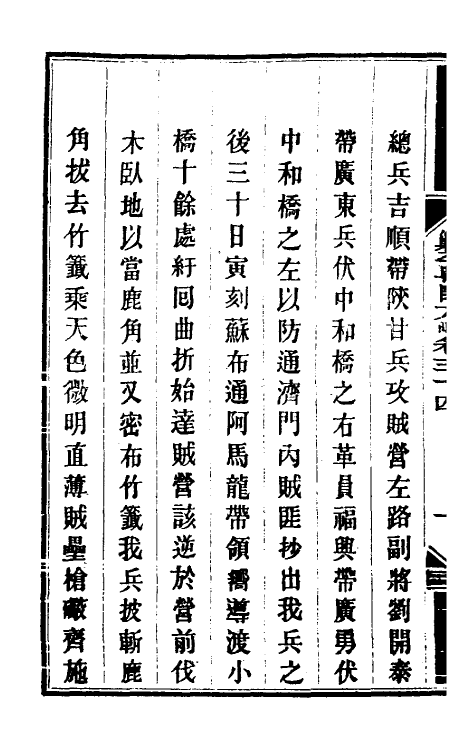 總兵吉順帶陝甘兵攻賊營左路副將劉開泰
帶廣東兵伏中和橋之右革員福興帶廣勇伏
中和橋之左以防通濟門內賊匪抄出我兵之
後三十日寅刻蘇布通阿馬龍帶領嚮導渡小
橋十餘處紆回曲折始達賊營該逆於營前伐
木臥地以當鹿角並又密布竹籤我兵披斬鹿
角拔去竹籤乘天色微明直薄賊壘槍礮齊施
卷三十四
一